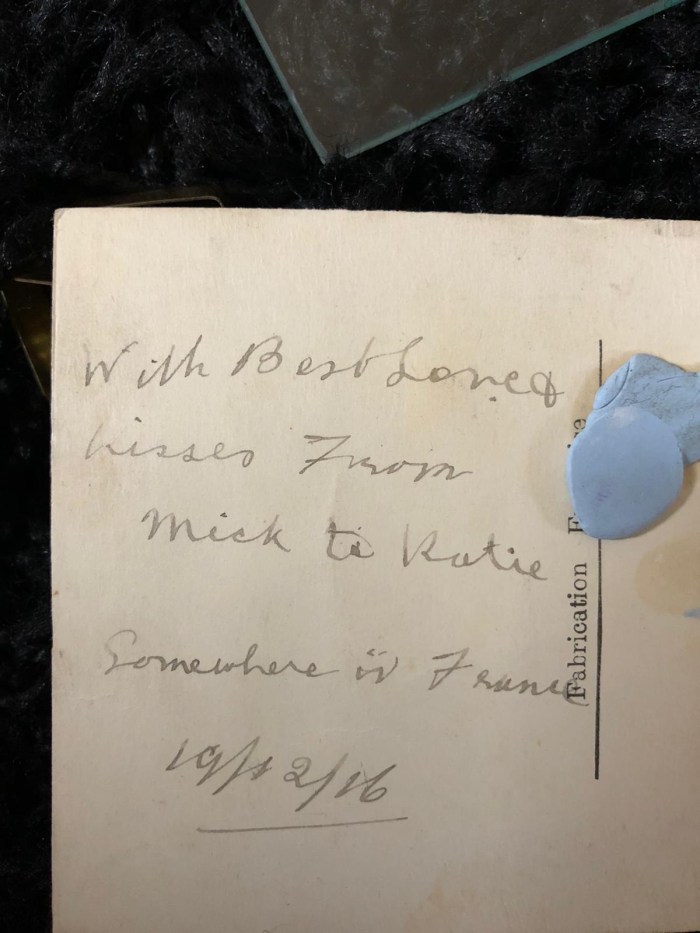 With Best Love &
kisses From
Mick to Katie
Somewhere in France
19/12/16
Fabrication